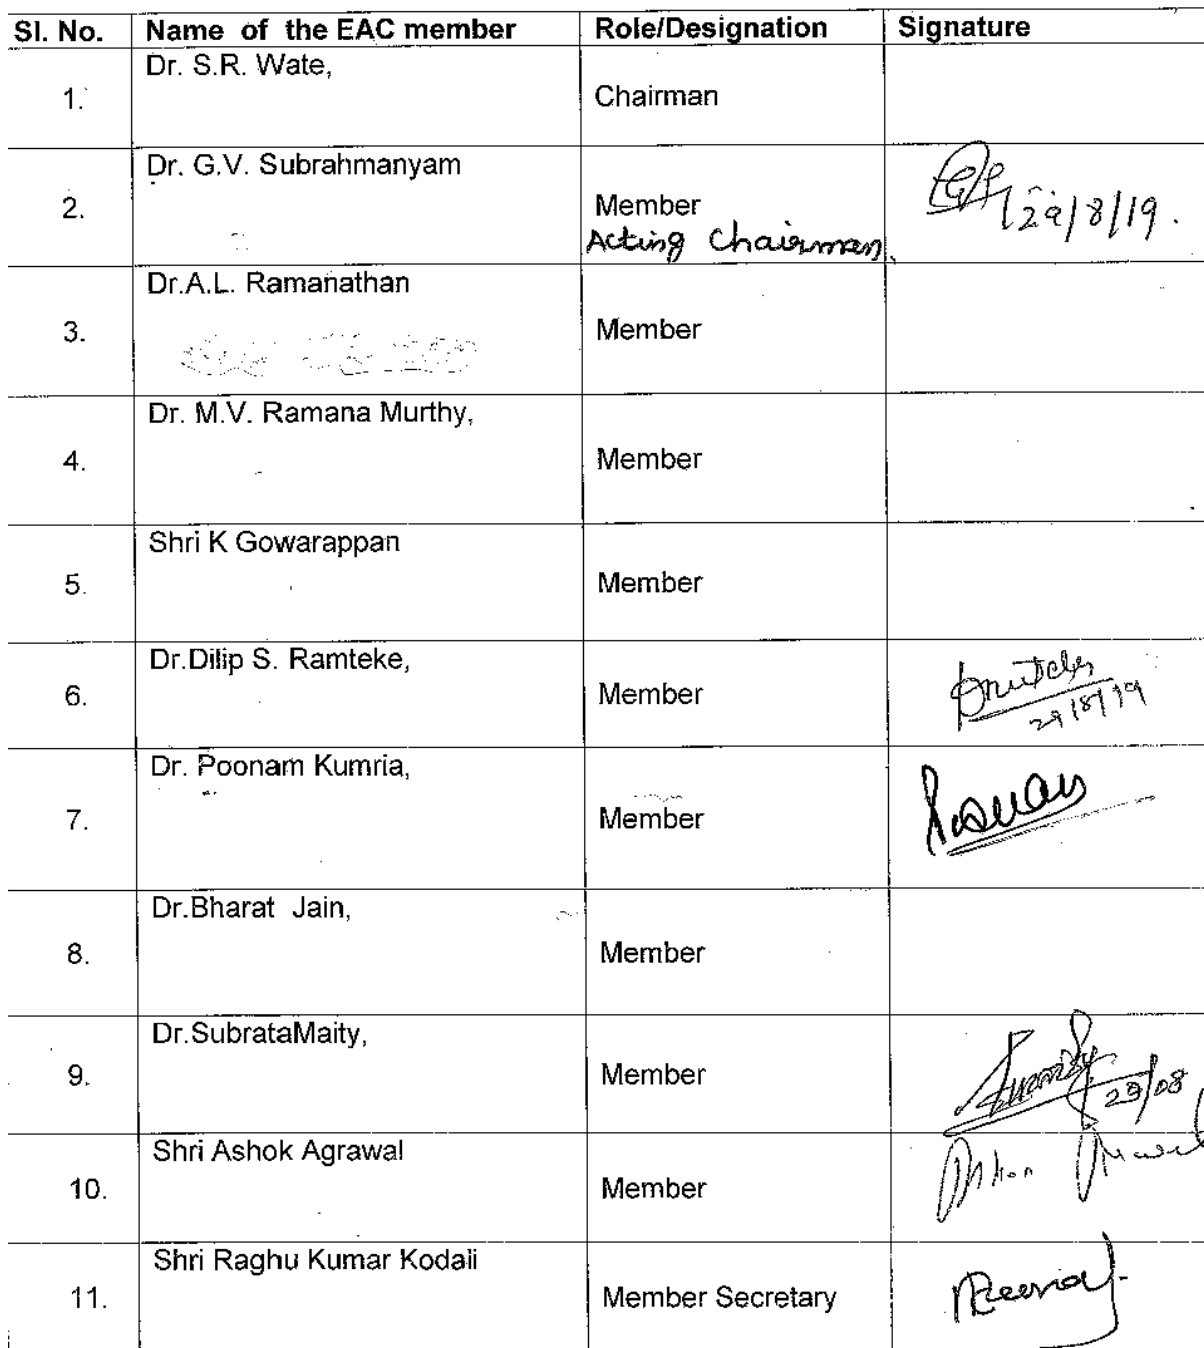 Sl. No. Name of the EAC member Role/Designation Signature
Dr. S.R. Wate,
1. Chairman
Dr. G.V. Subrahmanyam
2. Member
Acting Chairman
29/8/19.
Dr.A.L. Ramanathan
3. Member
Dr. M.V. Ramana Murthy,
4. Member
Shri K Gowarappan
5. Member
Dr.Dilip S. Ramteke,
6. Member
29/8/19
Dr. Poonam Kumria,
7. Member
Dr.Bharat Jain,
8. Member
Dr.SubrataMaity,
9. Member
29/08
Shri Ashok Agrawal
10. Member
Shri Raghu Kumar Kodali
11. Member Secretary